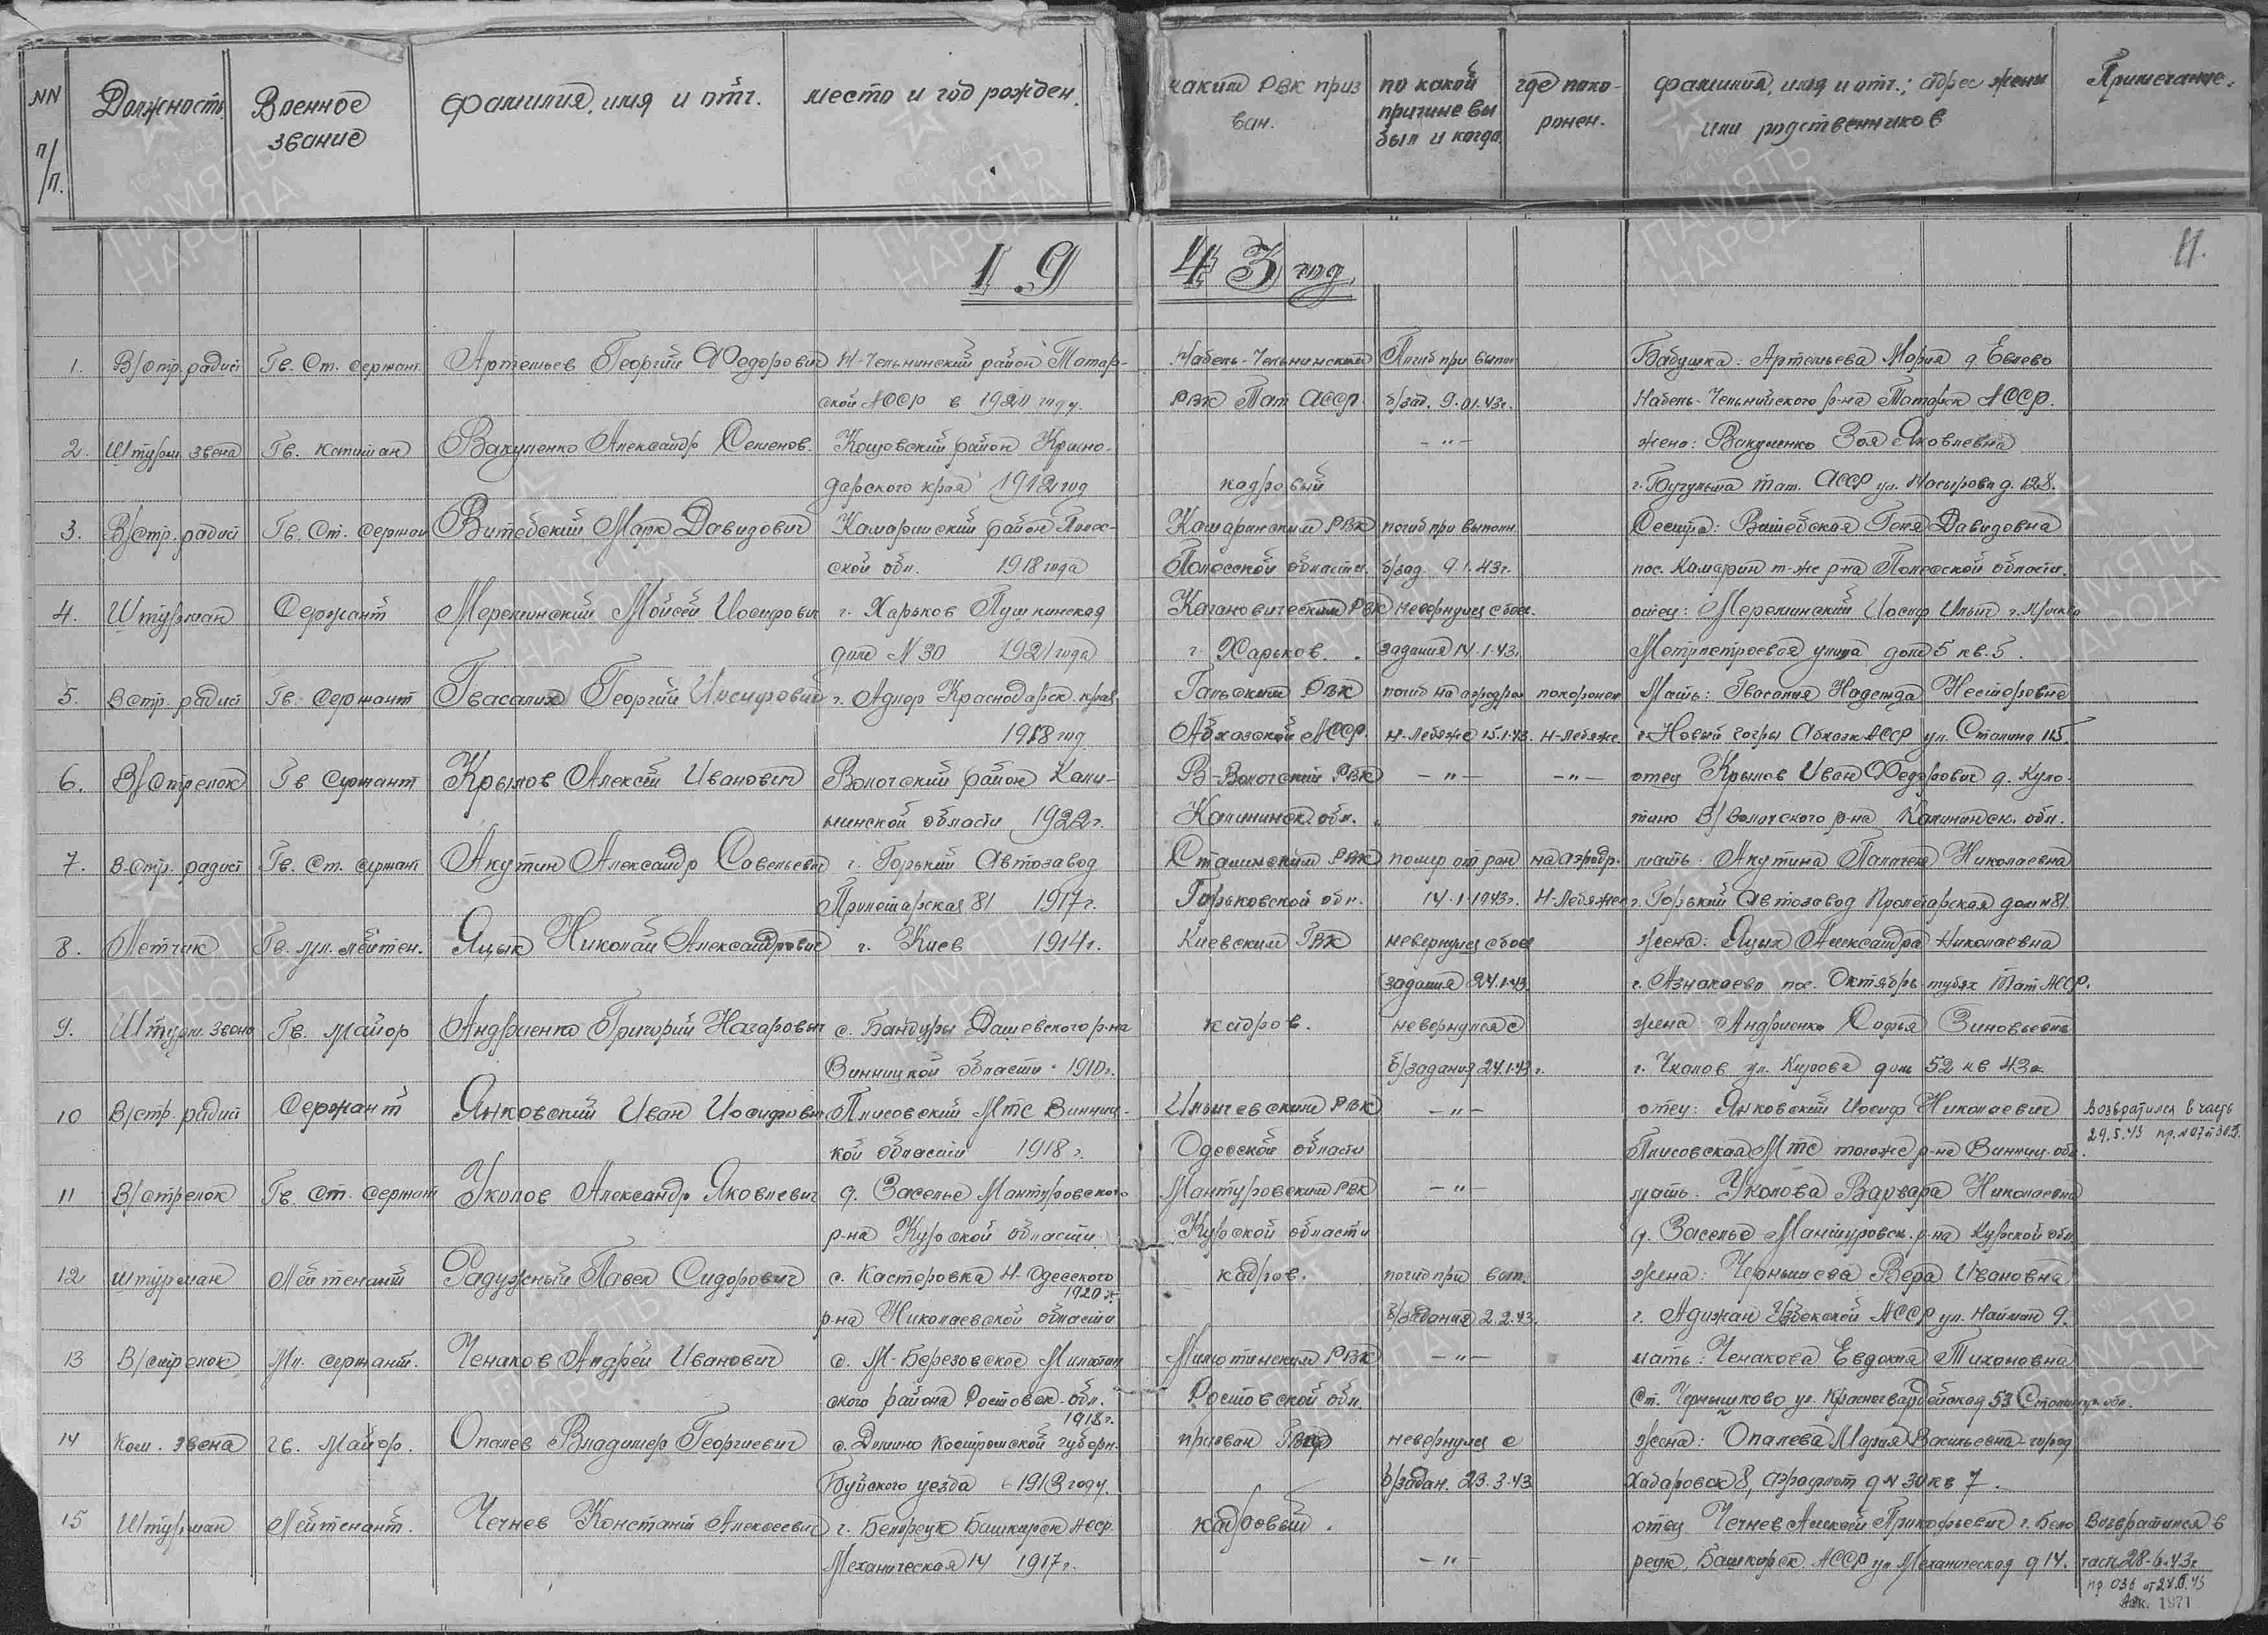 NN п/п.
Должность
Военное звание
фамилия, имя и отч.
место и год рожден.
каким РВК приз
ван.
по какой
причине вы
был и когда
где похо-
ронен.
фамилия, имя и отч.; адрес жены
или родственников
Примечание.
11.
19 43 год
1. В/стр. радист Гв. Ст. Сержант Артемьев Георгий Федорович Н-Челнинский район Татар- Набель-Челнинским Погиб при выпол Бабушка: Артемьева Мария д. Евлево
ской АССР в 1920 году. РВК Тат АССР. б/зад. 9.01.43г. Набель-Челнийского р-на Татарск АССР.
2. Штурм. звена Гв. капитан Вакуленко Александр Семенов. Кощовский район Красно- -"- жена: Вакуленко Зоя Яковлевна
дарского края 1912 год кадровый г. Бугульма тат. АССР ул. Насырова д. 128.
3. В/стр. радист Гв. Ст. Сержан Витебский Марк Давидович Камаринский район Полес- Камаринским РВК погиб при выполн. Сестра: Витебская Геня Давидовна
ской обл. 1918 года Полесской области. б/зад. 9.1.43г. пос. Камарин т-же р-на Полесской области.
4. Штурман Сержант Мереминский Мойсей Иосифович г. Харьков Пушкинская Кагановическим РВК невернулся с боев. отец: Мереминский Иосиф Ильич г. Москва
дом N 30 1921 года г. Харьков. задания 14.1.43г. улица дом 5 кв. 5.
5. В стр. радист Гв. Сержант Гвасалия Георгий Иосифович г. Адлер Краснодарск. края Гальским РВК погиб на аэродром похоронен Мать: Гвасалия Надежда Несторовна
1918 год Абхазской АССР. Н-Лебяже 15.1.43. Н-Лебяже. г. Новый Абхазк АССР ул. Сталина 115.
6. В/стрелок Гв Сержант Крылов Алексей Иванович Волочский район Кали- В-Волочский РВК -"- -"- отец Крылов Иван Федорович д. Куло-
нинской области 1922г. Калининск. обл. тино В/Волочского р-на Калининск. обл.
7. В-стр. радист Гв. Ст. Сержант Акутин Александр Савельевич г. Горький Автозавод Сталинским РВК помер от ран на аэродр. мать: Акутина Пелагея Николаевна
Пролетарская 81 1917г. Горьковской обл. 14.1.1943г. Н-Лебяжен г. Горький Автозавод Пролетарская дом N 81.
8. Летчик Гв. мл. лейтен. Яцык Николай Александрович г. Киев 1914г. Киевским ГВК невернулся с боев жена: Яцык Александра Николаевна
задания 24.1.43. г. Азнакаево пос. Октябрь Тат АССР.
9. Штурм. звена Гв. Майор Андриенко Григорий Назарович с. Бандуры Дашевского р-на кадров. невернулся с жена: Андриенко Софья Зиновьевна
Винницкой области 1910г. б/задания 24.1.43г. г. Чкалов ул. Кирова дом 52 кв 43а
10 В/стр. радист Сержант Янковский Иван Иосифович Плисовский Мтс Винниц- Ильичевским РВК -"- отец: Янковский Иосиф Николаевич Возвратился в часть
29.5.43 пр. N 07
кой области 1918 г. Одесской области Плисовская Мтс тогоже р-на Винниц. обл.
11 В/стрелок Гв. Ст. Сержант Уколов Александр Яковлевич д. Заселье Мантуровского Мантуровским РВК -"- мать: Уколова Варвара Николаевна
р-на Курской области Курской области д. Заселье Мантуровск. р-на Курской обл
12 Штурман Лейтенант Радужный Павел Сидорович с. Кастеровка Н-Одесского кадров. погиб при вып. жена: Чернышева Вера Ивановна
1920 г.
р-на Николаевской области б/задания 2.2.43. г. Адижан Узбекской АССР ул. Найман 9.
13 В/стрелок Мл. сержант. Ченаков Андрей Иванович с. М-Березовское Милютин Милютинским РВК -"- мать: Ченакова Евдокия Тихоновна
ского района Ростовск. обл. Ростовской обл. Ст. Чернышково ул. Красногвардейская 53 обл.
1918г.
14 Ком. звена гв. Майор. Опалев Владимер Георгиевич с. Домино Костромской губерн. призван ГВК невернулся с жена: Опалева Мария Васильевна-город
Буйского уезда 1913 году. б/задан. 23.3.43 Хабаровск 8, аэрофлот д N 30 кв 7.
15 Штурман Лейтенант. Чечнев Констант Алексеевич г. Белорецк Башкирск АССР кадровый. отец Чечнев Алексей Прокофьевич г. Бело Возвратился в
Механическая 14 1917г. -"- рецк, Башкирск. АССР ул Механическая д 14. часть 28.6.43г
пр 036 от 28.6.43
1971
ПАМЯТЬ НАРОДА